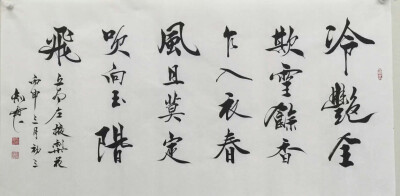 冷艷全
欺雪餘香
乍入衣春
風且莫定
吹向玉階
飛
丘為左掖梨花
丙申三月初三